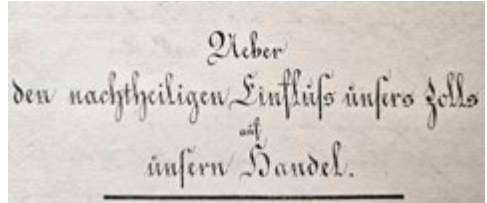 Ueber
den nachtheiligen Einfluss unsers Zolls
auf
unsern Handel.